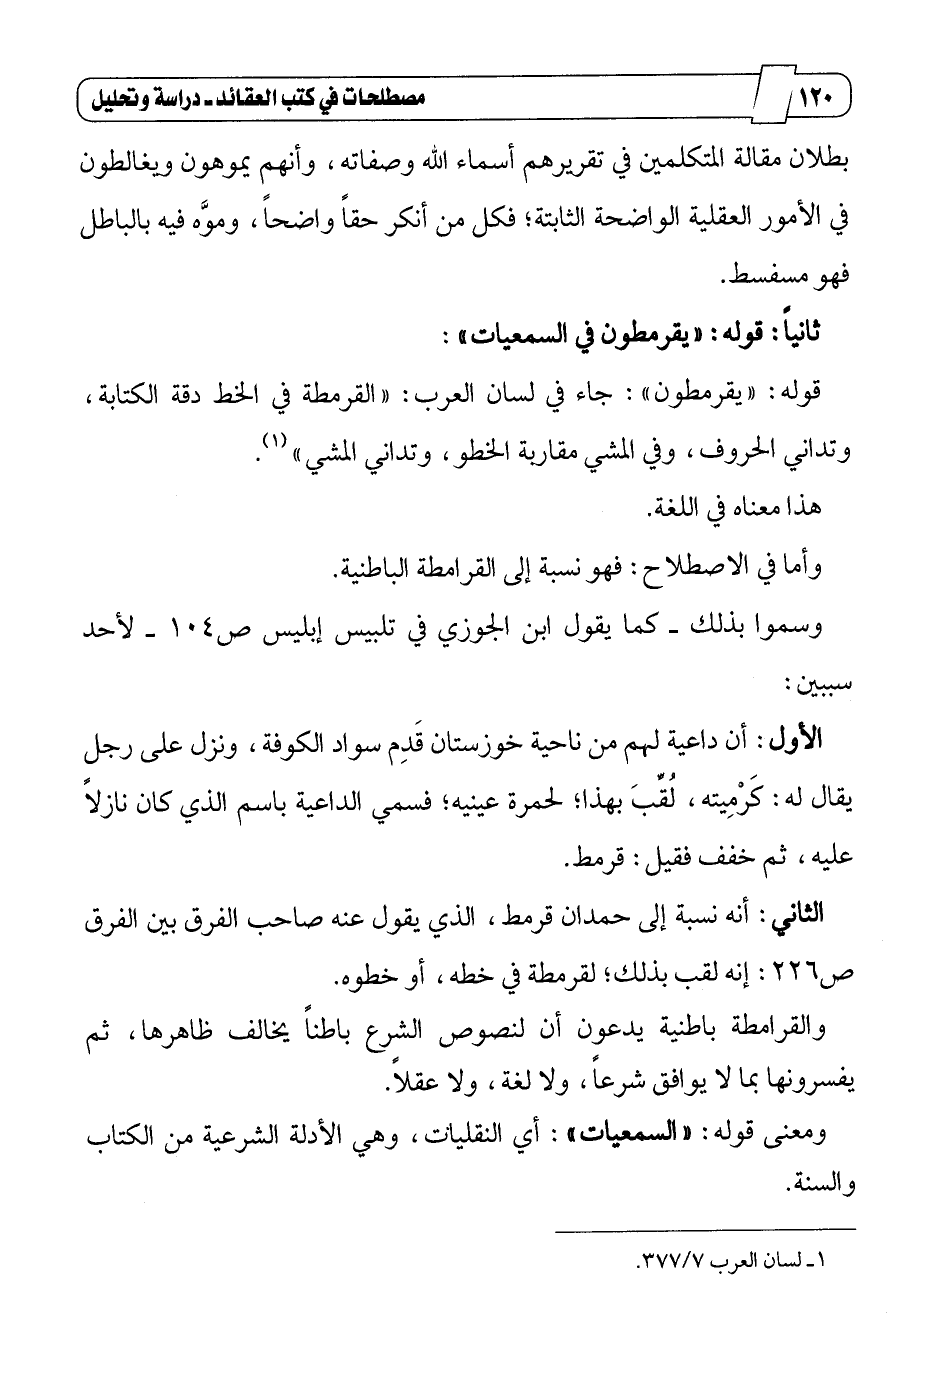 ١٢٠ مصطلحات في كتب العقائد ـ دراسة وتحليل
بطلان مقالة المتكلمين في تقريرهم أسماء الله وصفاته، وأنهم يموهون ويغالطون
في الأمور العقلية الواضحة الثابتة؛ فكل من أنكر حقاً واضحاً، وموَّه فيه بالباطل
فهو مسفسط.
ثانياً: قوله: «يقرمطون في السمعيات»:
قوله: «يقرمطون»: جاء في لسان العرب: «القرمطة في الخط دقة الكتابة،
وتداني الحروف، وفي المشي مقاربة الخطو، وتداني المشي»(١).
هذا معناه في اللغة.
وأما في الاصطلاح: فهو نسبة إلى القرامطة الباطنية.
وسموا بذلك ـ كما يقول ابن الجوزي في تلبيس إبليس ص١٠٤ ـ لأحد
سببين:
الأول: أن داعية لهم من ناحية خوزستان قَدِم سواد الكوفة، ونزل على رجل
يقال له: كَرْمِيته، لُقِّبَ بهذا؛ لحمرة عينيه؛ فسمي الداعية باسم الذي كان نازلاً
عليه، ثم خفف فقيل: قرمط.
الثاني: أنه نسبة إلى حمدان قرمط، الذي يقول عنه صاحب الفرق بين الفرق
ص٢٢٦: إنه لقب بذلك؛ لقرمطة في خطه، أو خطوه.
والقرامطة باطنية يدعون أن لنصوص الشرع باطناً يخالف ظاهرها، ثم
يفسرونها بما لا يوافق شرعاً، ولا لغة، ولا عقلاً.
ومعنى قوله: «السمعيات»: أي النقليات، وهي الأدلة الشرعية من الكتاب
والسنة.
١ـ لسان العرب ٣٧٧/٧.